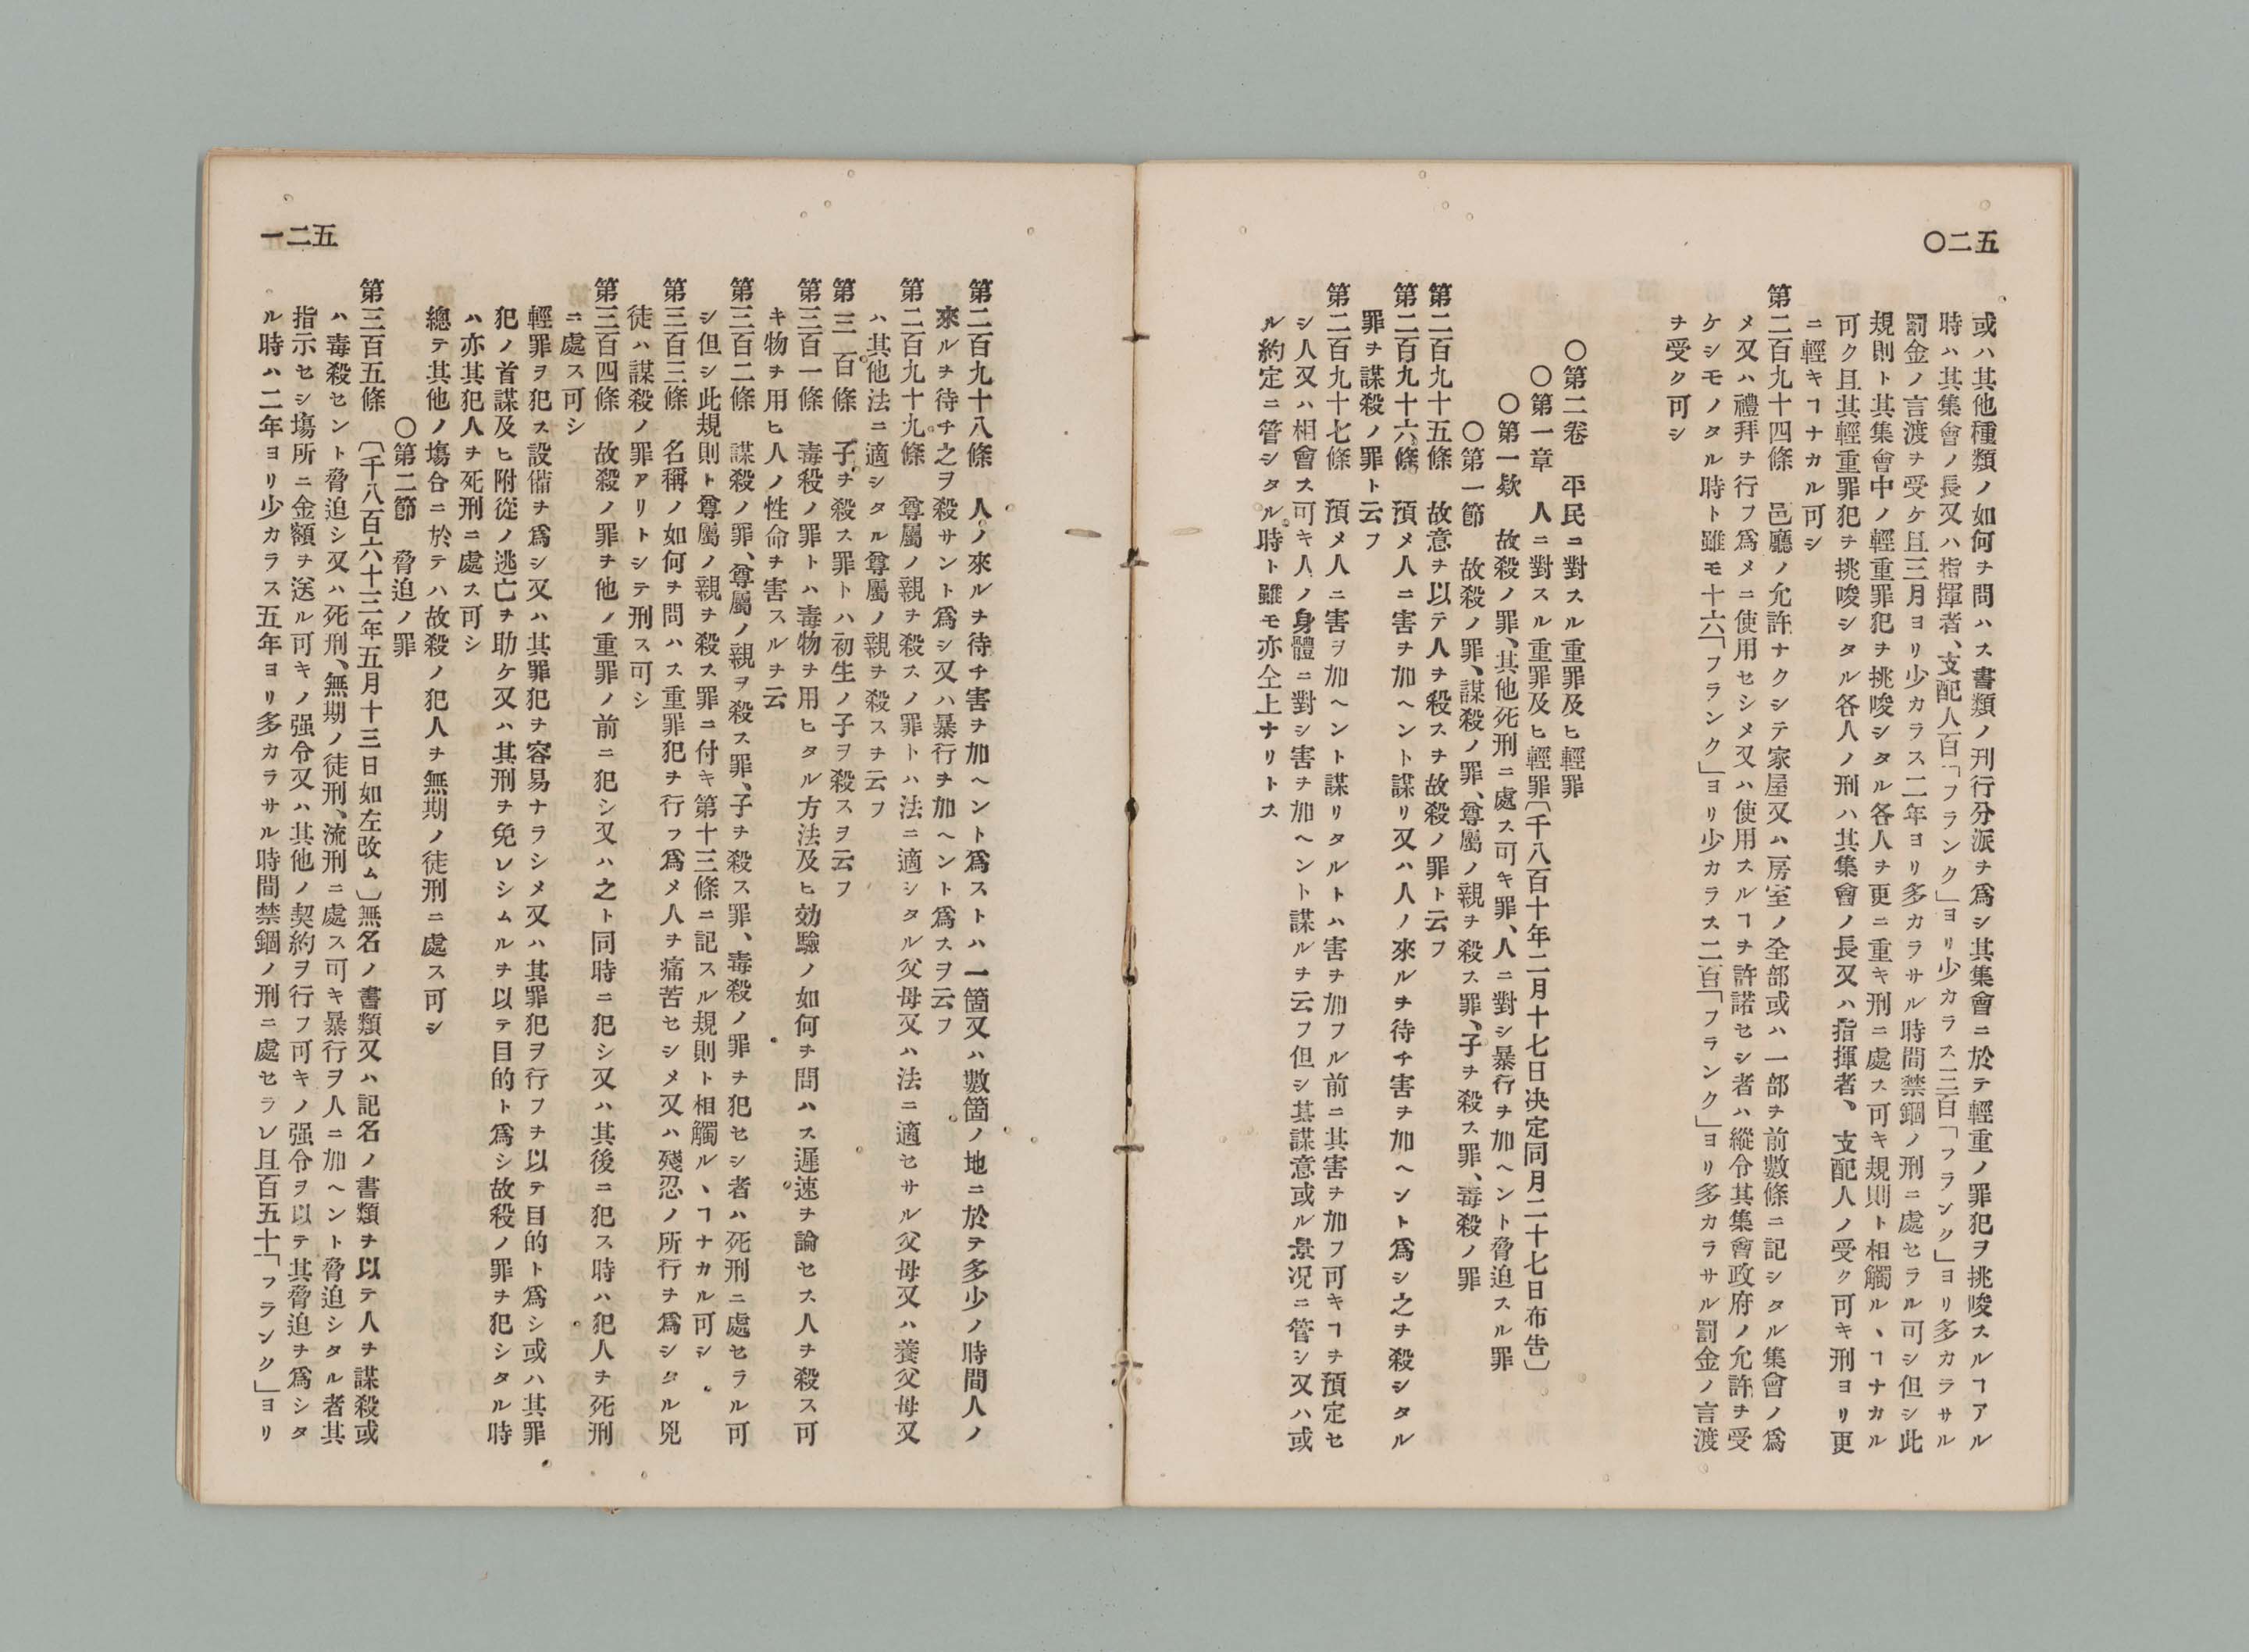 五二〇
或ハ其他種類ノ如何ヲ問ハス書類ノ刊行分派ヲ爲シ其集會ニ於テ輕重ノ罪犯ヲ挑唆スルヿアル
時ハ其集會ノ長又ハ指揮者、支配人百「フランク」ヨリ少カラス三百「フランク」ヨリ多カラサル
罰金ノ言渡ヲ受ケ且三月ヨリ少カラス二年ヨリ多カラサル時間禁錮ノ刑ニ處セラル可シ但シ此
規則ト其集會中ノ輕重罪犯ヲ挑唆シタル各人ヲ更ニ重キ刑ニ處ス可キ規則ト相觸ルヽヿナカル
可ク且其輕重罪犯ヲ挑唆シタル各人ノ刑ハ其集會ノ長又ハ指揮者、支配人ノ受ク可キ刑ヨリ更
ニ輕キヿナカル可シ
第二百九十四條　邑廳ノ允許ナクシテ家屋又ハ房室ノ全部或ハ一部ヲ前數條ニ記シタル集會ノ爲
メ又ハ禮拜ヲ行フ爲メニ使用セシメ又ハ使用スルヿヲ許諾セシ者ハ縱令其集會政府ノ允許ヲ受
ケシモノタル時ト雖モ十六「フランク」ヨリ少カラス二百「フランク」ヨリ多カラサル罰金ノ言渡
ヲ受ク可シ
〇第二卷　平民ニ對スル重罪及ヒ輕罪
〇第一章　人ニ對スル重罪及ヒ輕罪〔千八百十年二月十七日決定同月二十七日布告〕
〇第一欵　故殺ノ罪、其他死刑ニ處ス可キ罪、人ニ對シ暴行ヲ加ヘント脅迫スル罪
〇第一節　故殺ノ罪、謀殺ノ罪、尊屬ノ親ヲ殺ス罪、子ヲ殺ス罪、毒殺ノ罪
第二百九十五條　故意ヲ以テ人ヲ殺スヲ故殺ノ罪ト云フ
第二百九十六條　預メ人ニ害ヲ加ヘント謀リ又ハ人ノ來ルヲ待チ害ヲ加ヘント爲シ之ヲ殺シタル
罪ヲ謀殺ノ罪ト云フ
第二百九十七條　預メ人ニ害ヲ加ヘント謀リタルトハ害ヲ加フル前ニ其害ヲ加フ可キヿヲ預定セ
シ人又ハ相會ス可キ人ノ身體ニ對シ害ヲ加ヘント謀ルヲ云フ但シ其謀意或ル景況ニ管シ又ハ或
ル約定ニ管シタル時ト雖モ亦仝上ナリトス
五二一
第二百九十八條　人ノ來ルヲ待チ害ヲ加ヘント爲ストハ一箇又ハ數箇ノ地ニ於テ多少ノ時間人ノ
來ルヲ待チ之ヲ殺サント爲シ又ハ暴行ヲ加ヘント爲スヲ云フ
第二百九十九條　尊屬ノ親ヲ殺スノ罪トハ法ニ適シタル父母又ハ法ニ適セサル父母又ハ養父母又
ハ其他法ニ適シタル尊屬ノ親ヲ殺スヲ云フ
第三百條　子ヲ殺ス罪トハ初生ノ子ヲ殺スヲ云フ
第三百一條　毒殺ノ罪トハ毒物ヲ用ヒタル方法及ヒ効驗ノ如何ヲ問ハス遲速ヲ論セス人ヲ殺ス可
キ物ヲ用ヒ人ノ性命ヲ害スルヲ云
第三百二條　謀殺ノ罪、尊屬ノ親ヲ殺ス罪、子ヲ殺ス罪、毒殺ノ罪ヲ犯セシ者ハ死刑ニ處セラル可
シ但シ此規則ト尊屬ノ親ヲ殺ス罪ニ付キ第十三條ニ記スル規則ト相觸ルヽヿナカル可シ
第三百三條　名稱ノ如何ヲ問ハス重罪犯ヲ行フ爲メ人ヲ痛苦セシメ又ハ殘忍ノ所行ヲ爲シタル兇
徒ハ謀殺ノ罪アリトシテ刑ス可シ
第三百四條　故殺ノ罪ヲ他ノ重罪ノ前ニ犯シ又ハ之ト同時ニ犯シ又ハ其後ニ犯ス時ハ犯人ヲ死刑
ニ處ス可シ
輕罪ヲ犯ス設備ヲ爲シ又ハ其罪犯ヲ容易ナラシメ又ハ其罪犯ヲ行フヲ以テ目的ト爲シ或ハ其罪
犯ノ首謀及ヒ附從ノ逃亡ヲ助ケ又ハ其刑ヲ免レシムルヲ以テ目的ト爲シ故殺ノ罪ヲ犯シタル時
ハ亦其犯人ヲ死刑ニ處ス可シ
總テ其他ノ塲合ニ於テハ故殺ノ犯人ヲ無期ノ徒刑ニ處ス可シ
〇第二節　脅迫ノ罪
第三百五條　〔千八百六十三年五月十三日如左改ム〕無名ノ書類又ハ記名ノ書類ヲ以テ人ヲ謀殺或
ハ毒殺セント脅迫シ又ハ死刑、無期ノ徒刑、流刑ニ處ス可キ暴行ヲ人ニ加ヘント脅迫シタル者其
指示セシ塲所ニ金額ヲ送ル可キノ强令又ハ其他ノ契約ヲ行フ可キノ强令ヲ以テ其脅迫ヲ爲シタ
ル時ハ二年ヨリ少カラス五年ヨリ多カラサル時間禁錮ノ刑ニ處セラレ且百五十「フランク」ヨリ